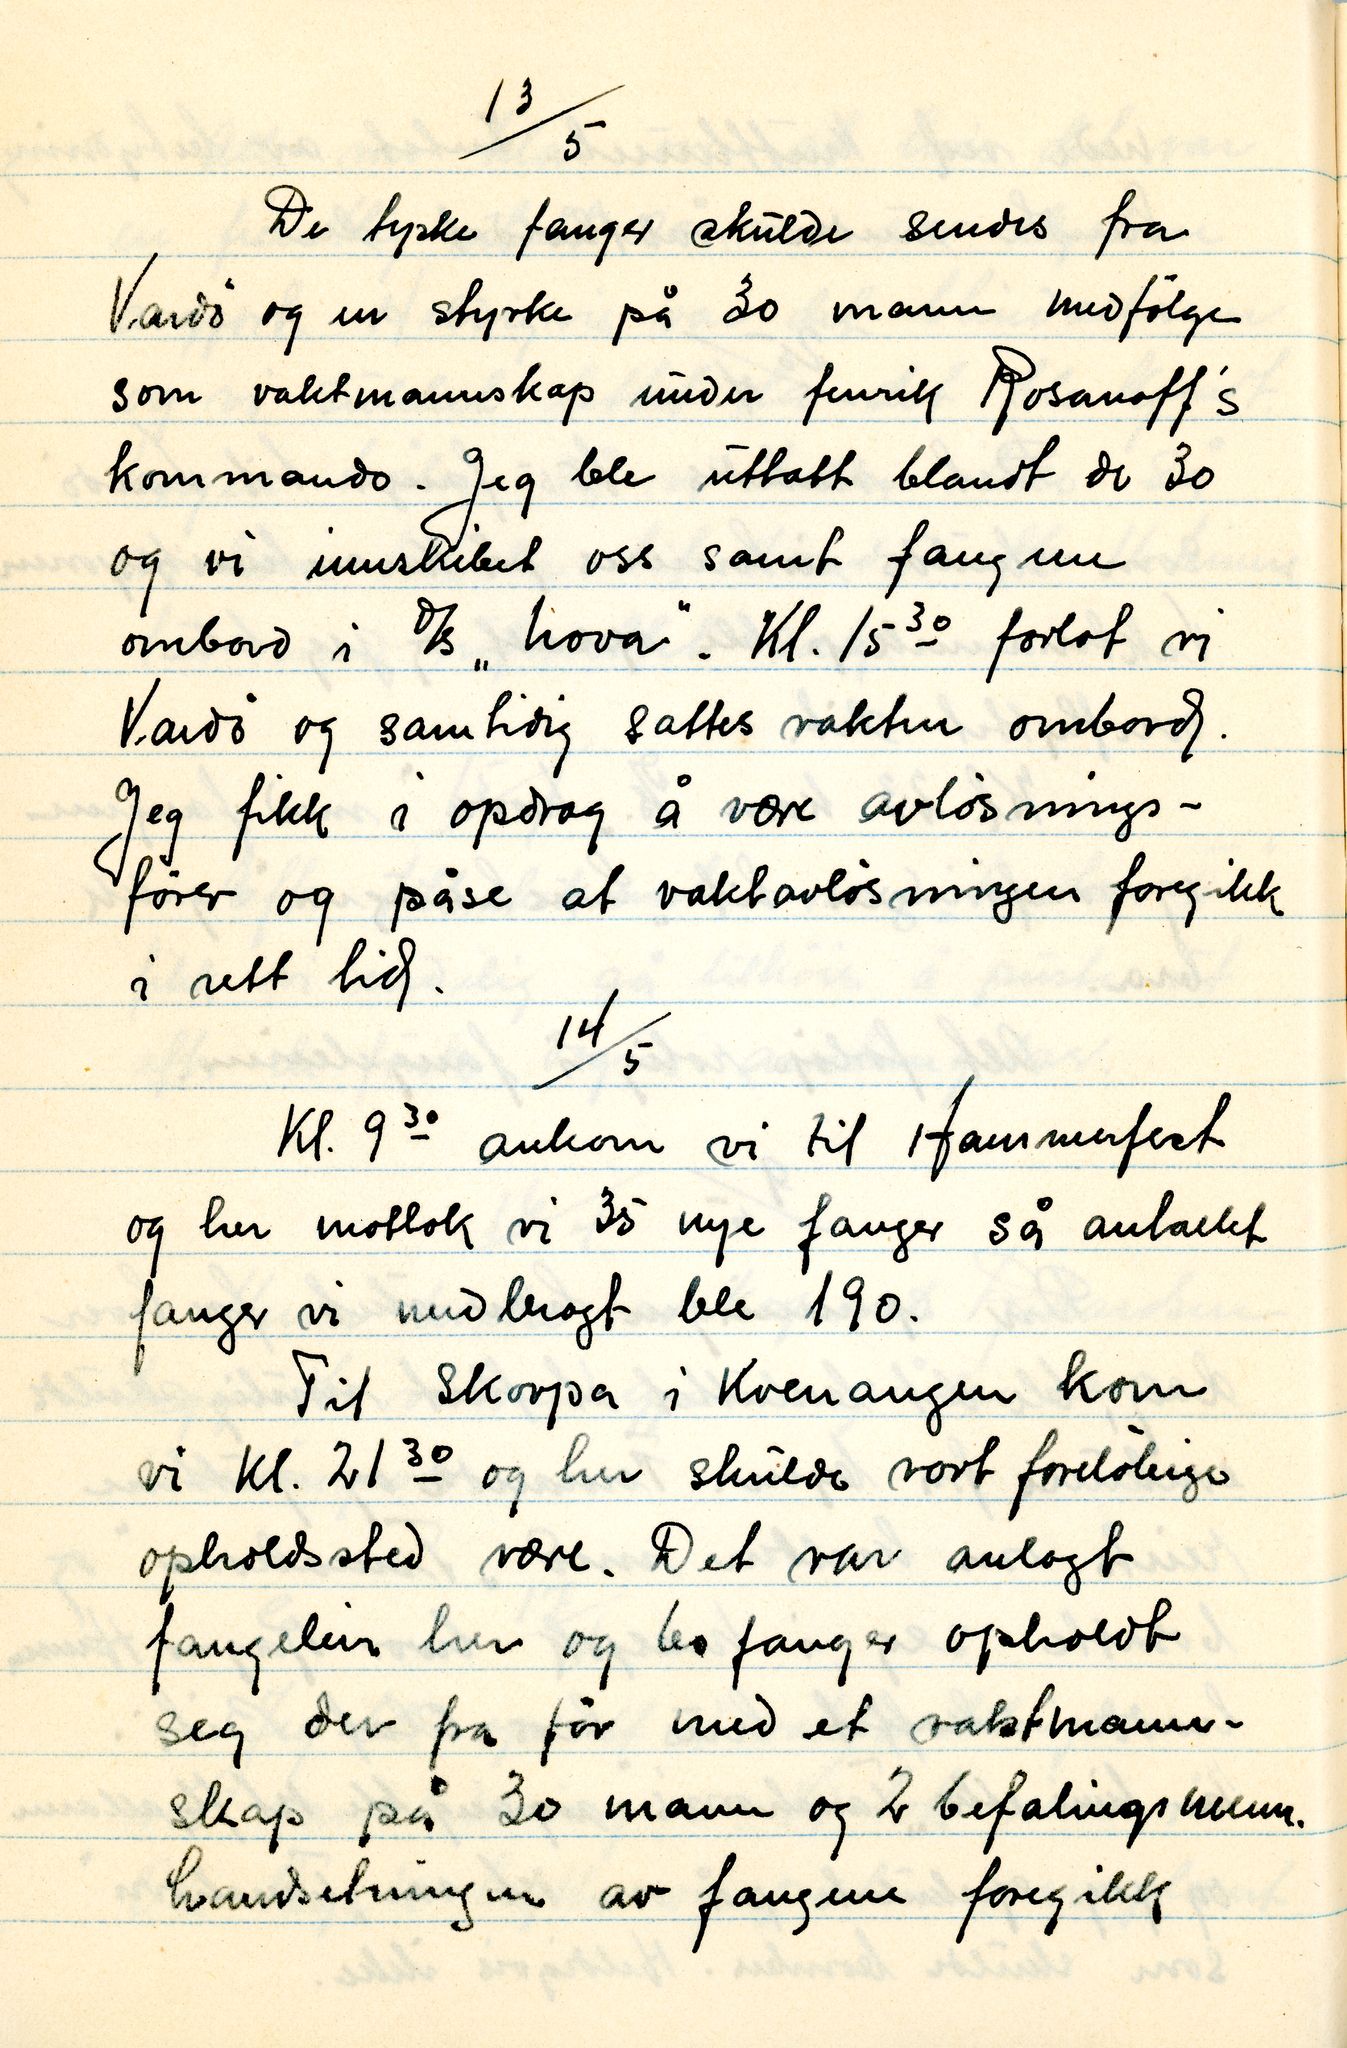 13/5
De tyske fanger skulde sendes fra
Vardö og en styrke på 30 mann medfölge
som vaktmannskap under fenrik Rosanoff's
kommando. Jeg ble uttatt blandt de 30
og vi innskibet oss samt fangene
ombord i D/S „Nova". Kl. 15³⁰ forlot vi
Vardö og samtidig sattes vakten ombord.
Jeg fikk i opdrag å være avlösnings-
förer og påse at vaktavlösningen foregikk
i rett tid.
14/5
Kl. 9³⁰ ankom vi til Hammerfest
og her mottok vi 35 nye fanger så antallet
fanger vi medbragt ble 190.
Til Skorpa i Kvenangen kom
vi Kl. 21³⁰ og her skulde vort forelöbige
opholdssted være. Det var anlagt
fangeleir her og fanger opholdt
seg der fra för med et vaktmann-
skap på 30 mann og 2 befalingsmenn.
Landsetningen av fangene foregikk